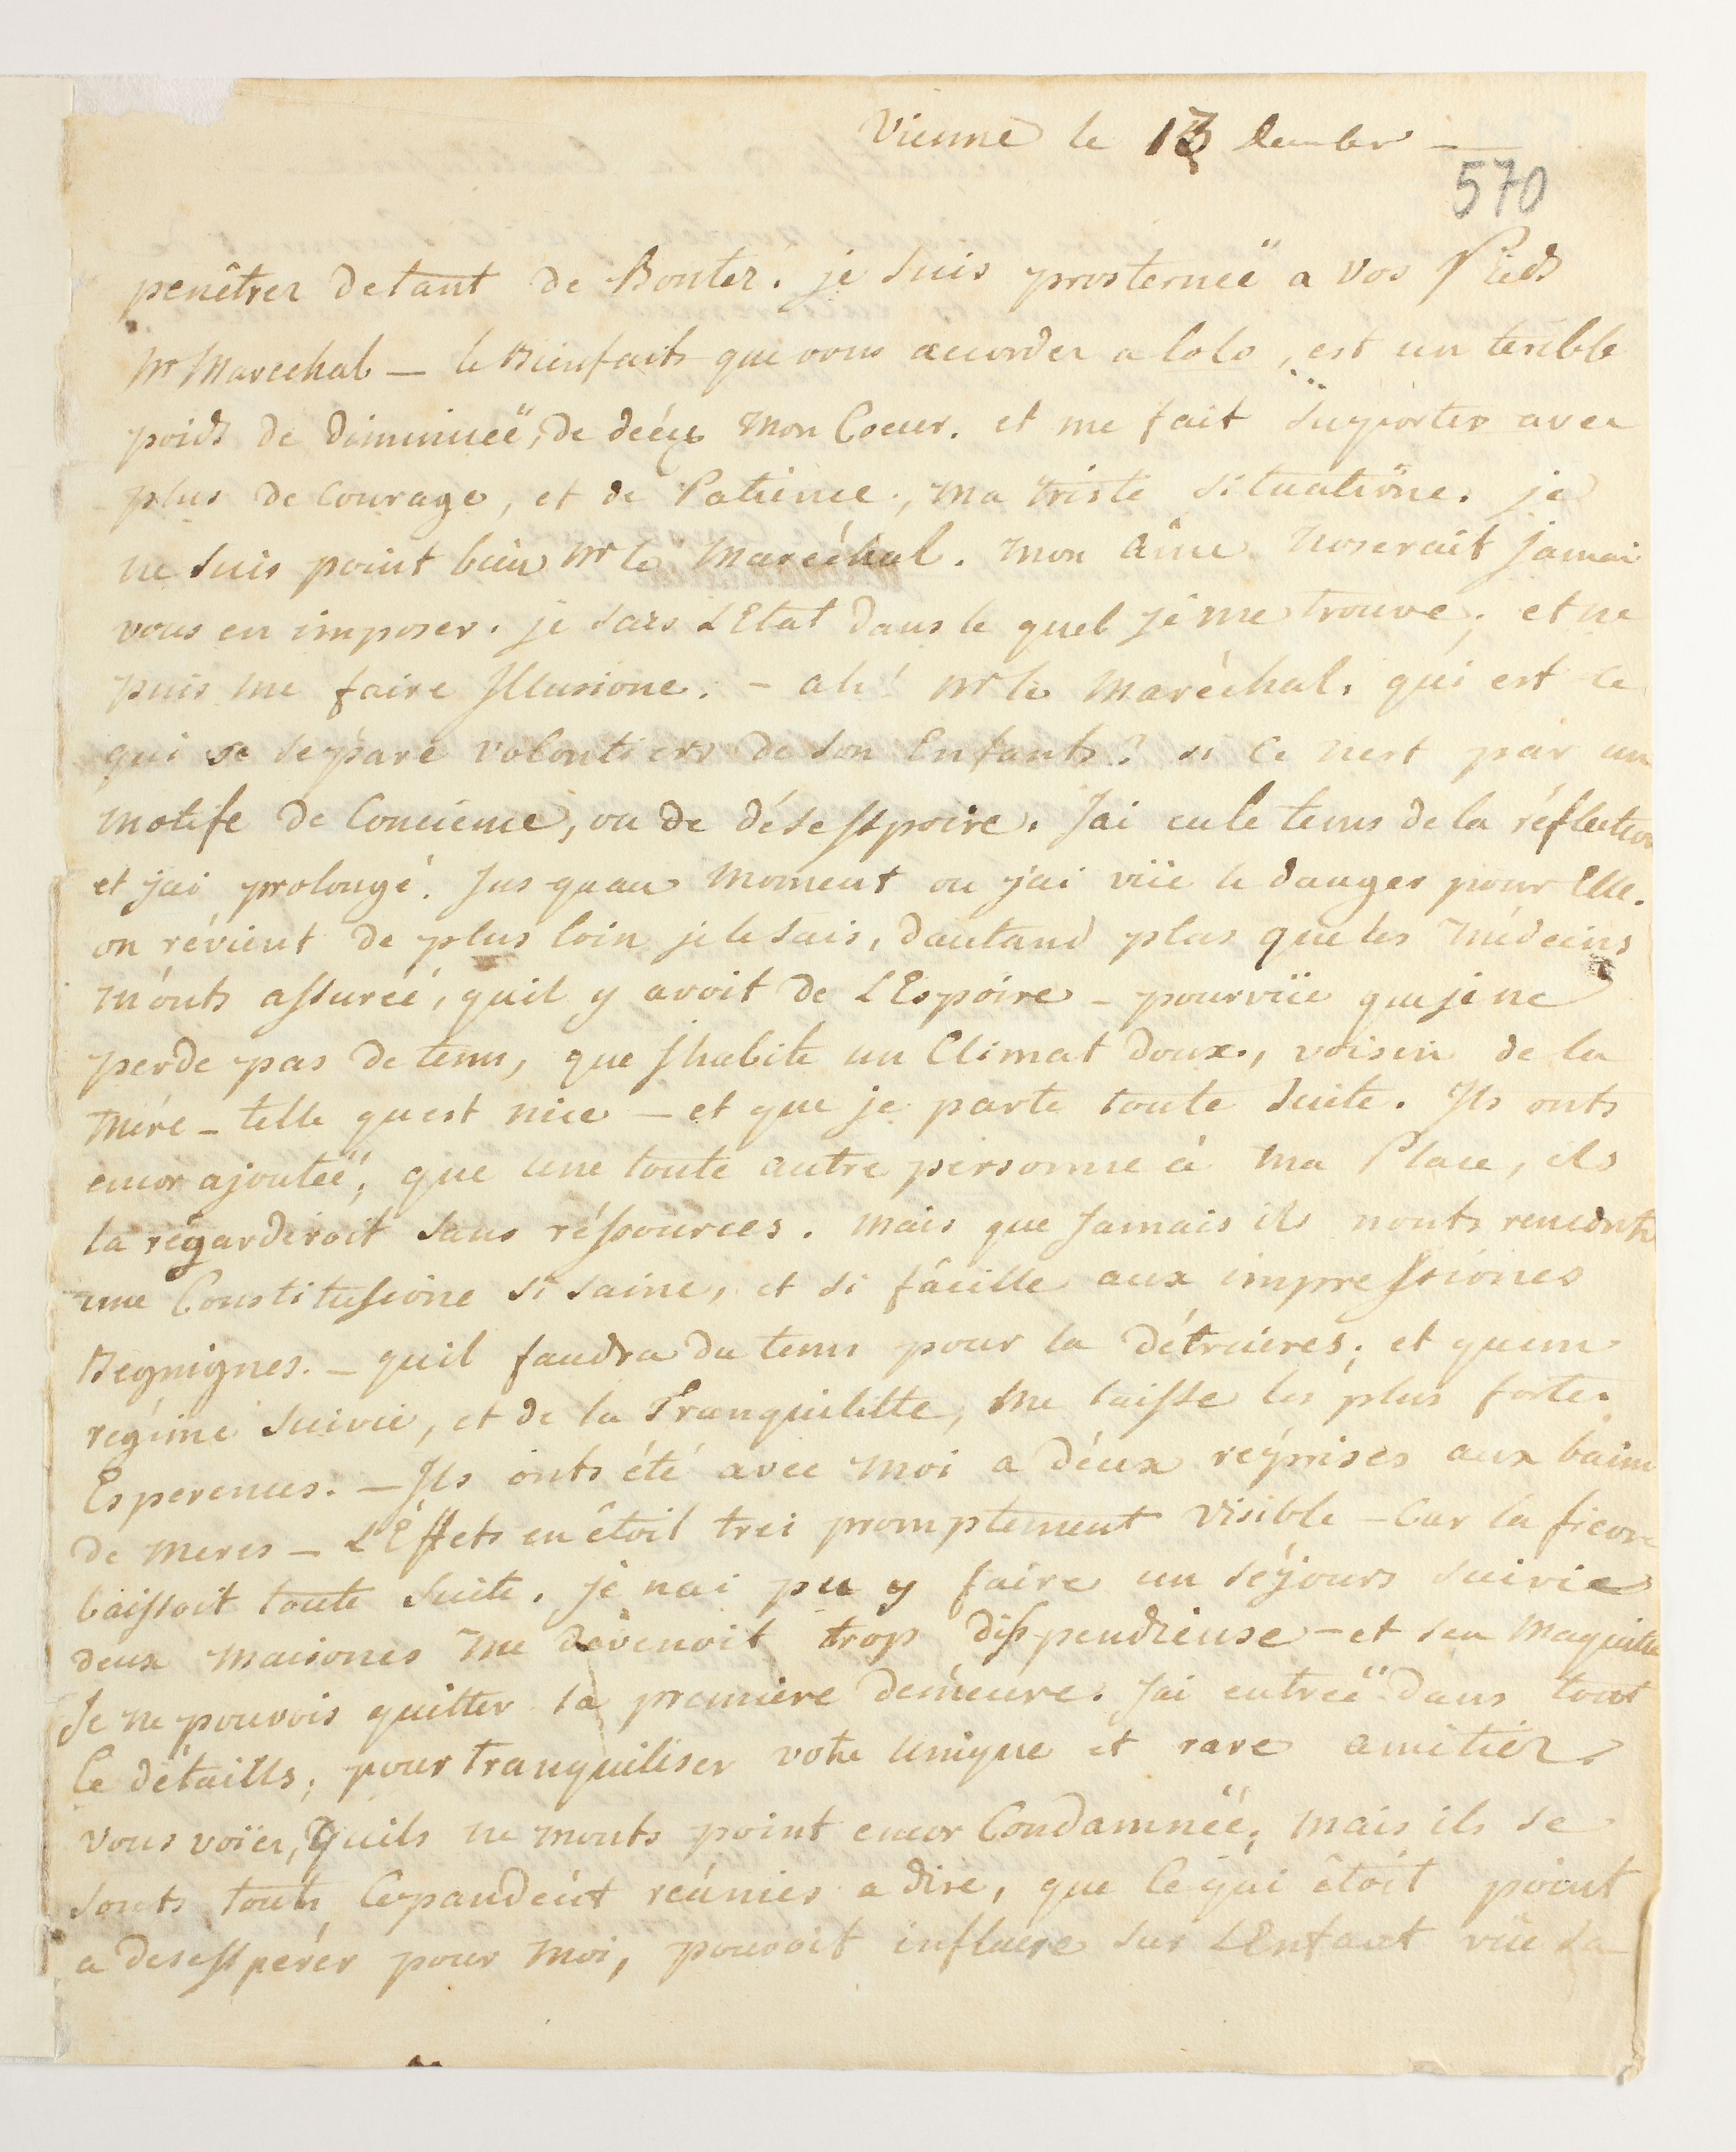 Vienne le 13 December —
570
penêtrer detant de Bontez. je suis prosterneë a vos Pieds
Mr Marechal — le Bienfaits que vous accorder a lolo, est un terible
poids de diminueë, de deéçu mon Coeur. et me fait suporter avec
plus de Courage, et de Patience, ma triste situatiöne. je
ne suis point bien Mr le Maréchal. mon âme noserait jamai
vous en imposer. je sais LEtat dans le quel je me trouve, et ne
puis me faire Jllusione. – ah! Mr le Maréchal, qui est ce
qui se sépare volontiers de son Enfants? si Ce nest par un
motife de Concience, ou de désesspoire. Jai eu le tems de la réflection
et jai prolongé. Jus quau moment ou j'ai vüe le danger pour Elle.
on révient de plus loin je le sais, dautand plus que les Médecins
m'onts assureé, quil y avoit de LEspoire – pourvüe que je ne
perde pas de tems, que jhabite un Climat doux, voisin de la
Mére – telle quest nice – et que je parte toute suite. Jls onts
encor ajouteë, que une toute autre personne à ma Place, ils
la régarderoit sans réssources. mais que Jamais ils nonts rencontre
une Constitusione si saine, et si fâcille aux impressiones
Begnignes. – quil faudra du tems pour la détruires; et quun
régime suivie, et de la Tranquilitte, me laisse les plus fortes
Esperences. – Jls onts été avec moi a déux réprises aux bains
de meres – L'Effets en êtoit tres promptement visible – Car la fievre
baissoit toute suite. je nai pu y faire un séjours suivie
deux maisones me dévenoit trop disspendieuse – et sen
Je ne pouvois quitter la premiere demeure. Jai entreë dans tout
Ce détaills, pour tranquiliser votre unique et rare amitiez
vous voïez, quils ne monts point encor Condamneë, mais ils se
sonts touts Cepandent réunies a dire, que Ce qui êtoit point
a desessperér pour moi, pouvoit influere sur LEnfant vüe sa